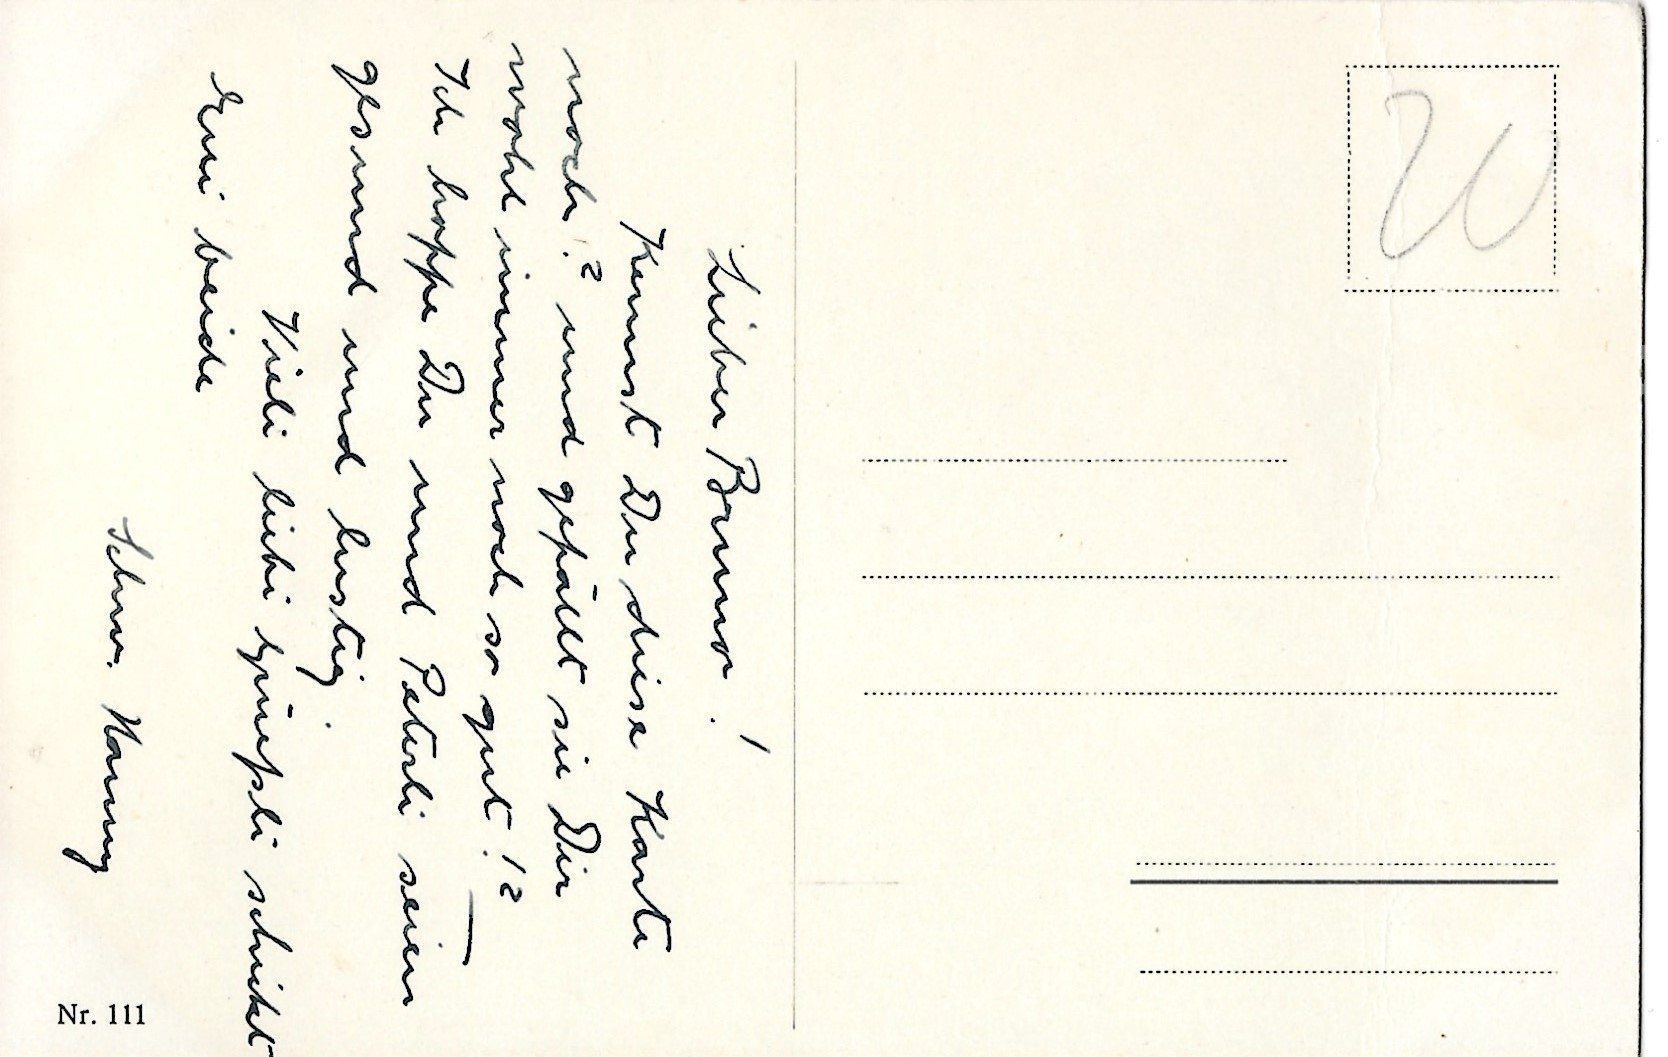 Lieber Bruno!
Kennst Du diese Karte
noch!? und gefällt sie Dir
wohl immer noch so gut!? —
Ich hoffe Du und Peterli seien
gesund und lustig.
Vieli liebi Grüessli schickt
Eui beide
Schw. Nanny
Nr. 111
20